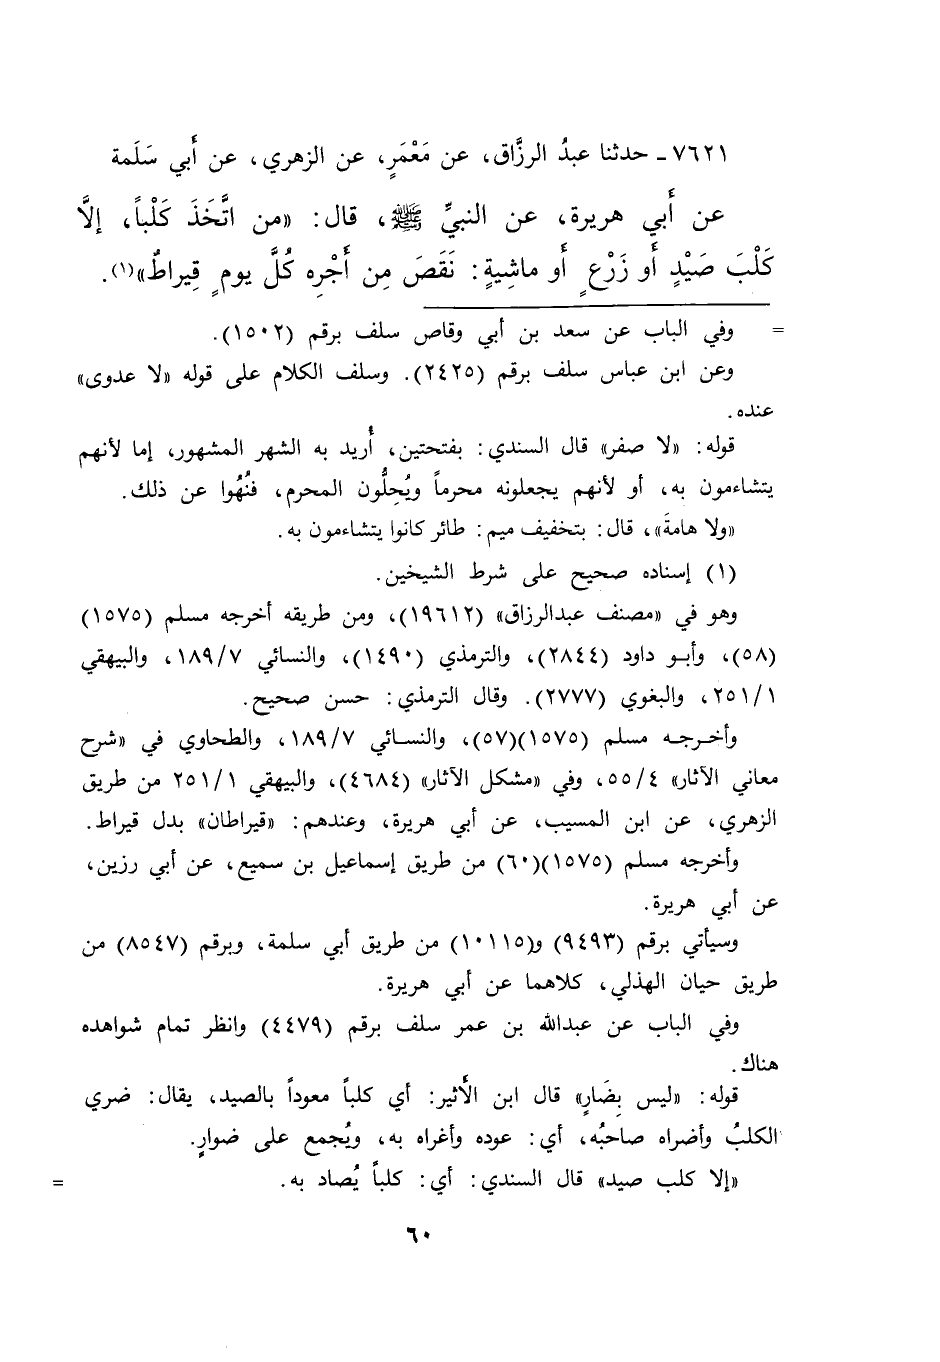 ٧٦٢١ـ حدثنا عبدُ الرزَّاق، عن مَعْمَرٍ، عن الزهري، عن أَبي سَلَمة
عن أَبي هريرة، عن النبيِّ ﷺ، قال: «من اتَّخَذَ كَلْباً، إلاَّ
كَلْبَ صَيْدٍ أَو زَرْعٍ أَو ماشِيةٍ: نَقَصَ مِن أَجْرِه كُلَّ يومٍ قِيراطٌ»(١).
= وفي الباب عن سعد بن أبي وقاص سلف برقم (١٥٠٢).
وعن ابن عباس سلف برقم (٢٤٢٥). وسلف الكلام على قوله «لا عدوى»
عنده.
قوله: «لا صفر» قال السندي: بفتحتين، أُريد به الشهر المشهور، إما لأنهم
يتشاءمون به، أو لأنهم يجعلونه محرماً ويُحِلُّون المحرم، فنُهُوا عن ذلك.
«ولا هامةَ»، قال: بتخفيف ميم: طائر كانوا يتشاءمون به.
(١) إسناده صحيح على شرط الشيخين.
وهو في «مصنف عبدالرزاق» (١٩٦١٢)، ومن طريقه أخرجه مسلم (١٥٧٥)
(٥٨)، وأبو داود (٢٨٤٤)، والترمذي (١٤٩٠)، والنسائي ١٨٩/٧، والبيهقي
٢٥١/١، والبغوي (٢٧٧٧). وقال الترمذي: حسن صحيح.
وأخرجه مسلم (١٥٧٥)(٥٧)، والنسائي ١٨٩/٧، والطحاوي في «شرح
معاني الآثار» ٥٥/٤، وفي «مشكل الآثار» (٤٦٨٤)، والبيهقي ٢٥١/١ من طريق
الزهري، عن ابن المسيب، عن أبي هريرة، وعندهم: «قيراطان» بدل قيراط.
وأخرجه مسلم (١٥٧٥)(٦٠) من طريق إسماعيل بن سميع، عن أبي رزين،
عن أبي هريرة.
وسيأتي برقم (٩٤٩٣) و(١٠١١٥) من طريق أبي سلمة، وبرقم (٨٥٤٧) من
طريق حيان الهذلي، كلاهما عن أبي هريرة.
وفي الباب عن عبدالله بن عمر سلف برقم (٤٤٧٩) وانظر تمام شواهده
هناك.
قوله: «ليس بِضَارٍ» قال ابن الأَثير: أي كلباً معوداً بالصيد، يقال: ضري
الكلبُ وأضراه صاحبُه، أي: عوده وأغراه به، ويُجمع على ضوارٍ.
«إلا كلب صيد» قال السندي: أي: كلباً يُصاد به. =
٦٠